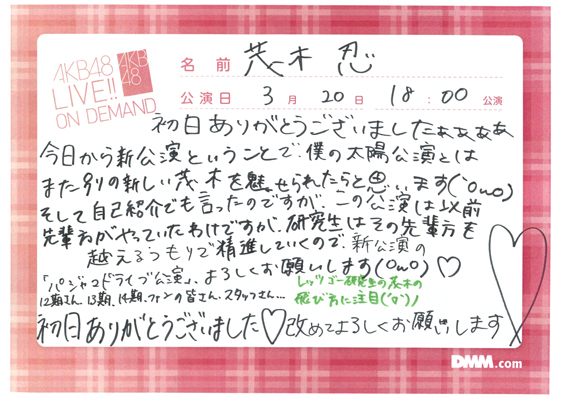 AKB48
LIVE!!
ON DEMAND
AKB
48
名前 茂木 忍
公演日 3月20日 18:00公演
初日ありがとうございましたぁぁぁぁ
今日から新公演ということで、僕の太陽公演とは
また別の新しい茂木を魅せられたらと思います(`OωO)
そして自己紹介でも言ったのですが、この公演は以前
先輩方がやっていたわけですが、研究生はその先輩方を
越えるつもりで精進していくので、新公演の
「パジャマドライブ公演」、よろしくお願いします(OωO)♡
12期さん、13期、14期、ファンの皆さん、スタッフさん…
レッツゴー研究生の茂木の
飛び方に注目('o')ノ
初日ありがとうございました♡改めてよろしくお願いします
DMM.com